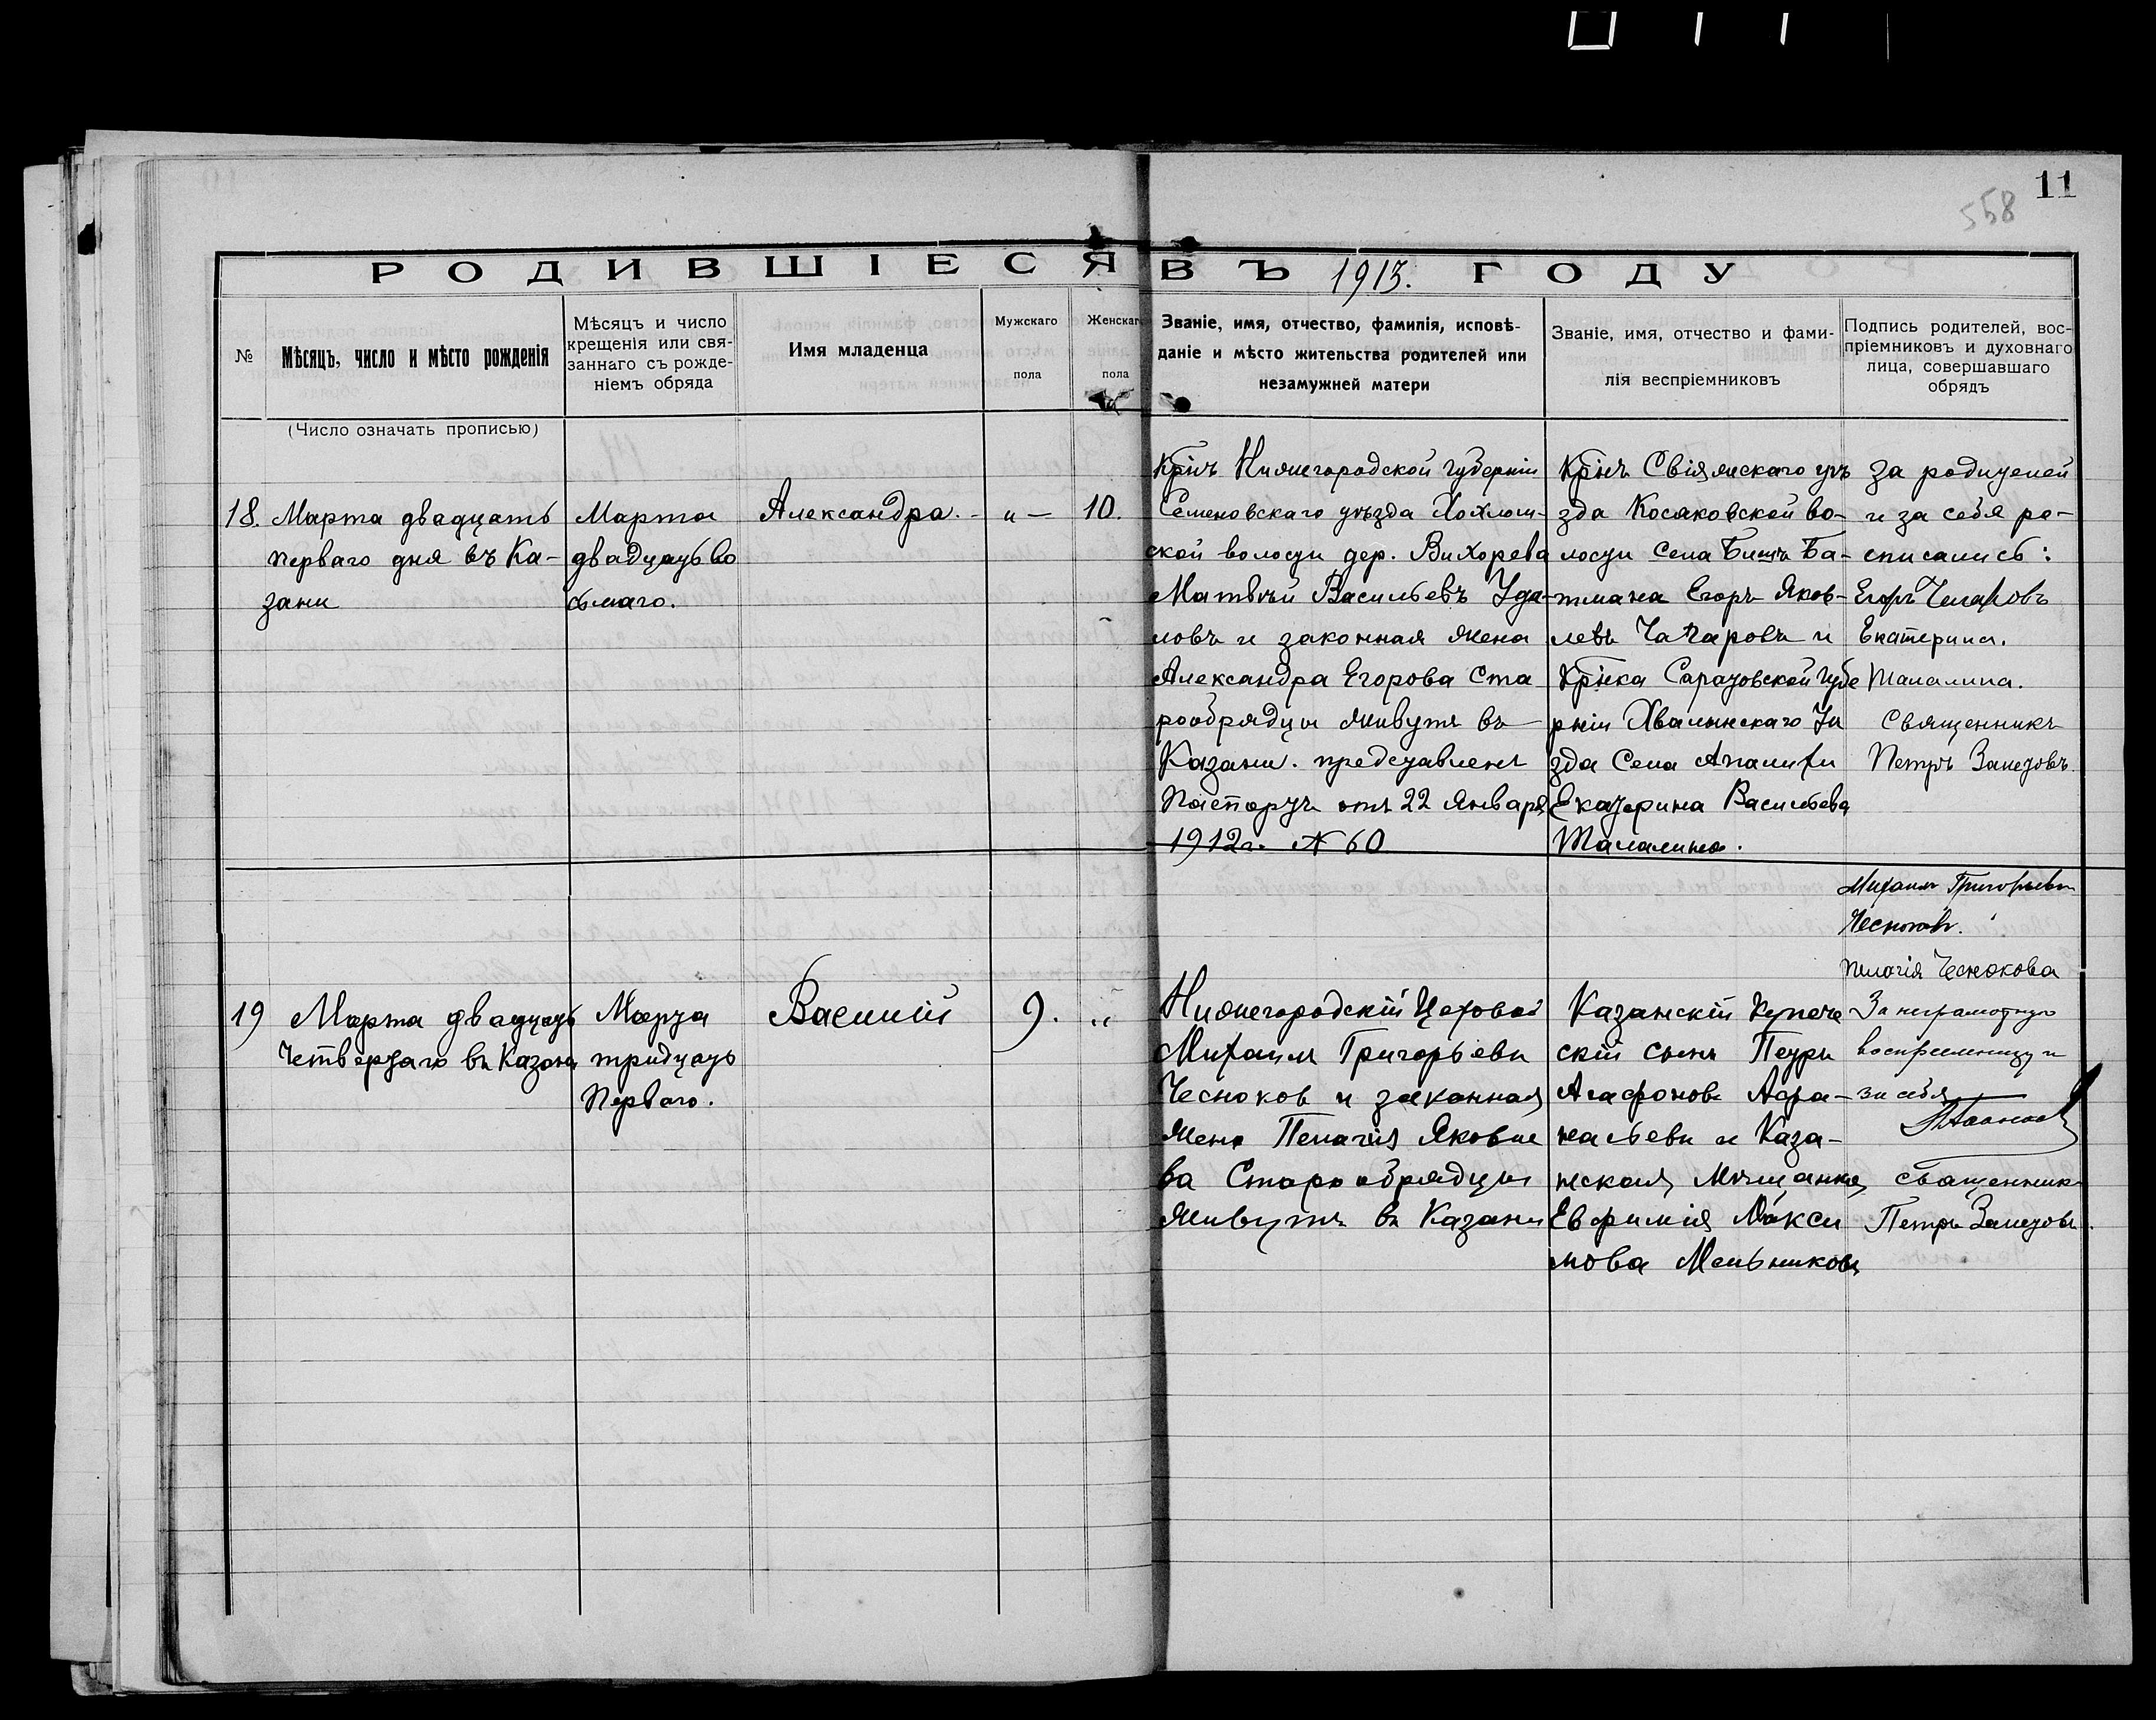 11
558
РОДИВШІЕСЯ ВЪ 1913. ГОДУ
№
Мѣсяцъ, число и мѣсто рожденія
Мѣсяцъ и число
крещенія или свя-
заннаго съ рожде-
ніемъ обряда
Имя младенца
Мужскаго
пола
Женскаго
пола
Званіе, имя, отчество, фамилія, исповѣ-
даніе и мѣсто жительства родителей или
незамужней матери
Званіе, имя, отчество и фами-
лія веспріемниковъ
Подпись родителей, вос-
пріемниковъ и духовнаго
лица, совершавшаго
обрядъ
(Число означать прописью)
18.
Марта двадцать
перваго дня въ Ка-
зани
Марта
двадцать во
сьмаго.
Александра.
" —
10.
Крнъ Нижегородской губерніи
Семеновскаго уѣзда Хохлом-
ской волости дер. Вихорева
Матвѣй Васильевъ Уда-
ловъ и законная жена
Александра Егорова Ста
рообрядцы живутъ въ
Казани. представленъ
Паспортъ отъ 22 Января
1912 г. № 60
Крнъ Свіяжскаго уѣ
зда Косяковской во-
лости Села Бишъ Ба-
тмана Егоръ Яков-
левъ Чапаровъ и
Крнка Саратовской губе
рніи Хвалынскаго Уѣ
зда Села Апалихи
Екатерина Васильева
Шалалина.
За родителей
и за себя ро-
списались:
Егоръ
Екатерина.
Шалалина.
Священникъ
Петръ Залетовъ.
19
Марта двадцать
Четвертаго въ Казани
Марта
тридцать
Перваго.
Василій
9.
"
Нижегородскій Цеховой
Михаилъ Григорьевъ
Чесноков и законная
жена Пелагія Яковле
ва Старообрядцы
живутъ въ Казани
Казанскій Купече
скій сынъ Петръ
Агафоновъ Афа-
насьевъ и Каза-
нская Мѣщанка
Евфимія Макси
мова Мельникова
Михаилъ Григорьевъ
Чесноковъ.
Пелагія Чеснокова
За неграмотную
воспреемницу и
за себя
священникъ
Петръ Залетовъ.